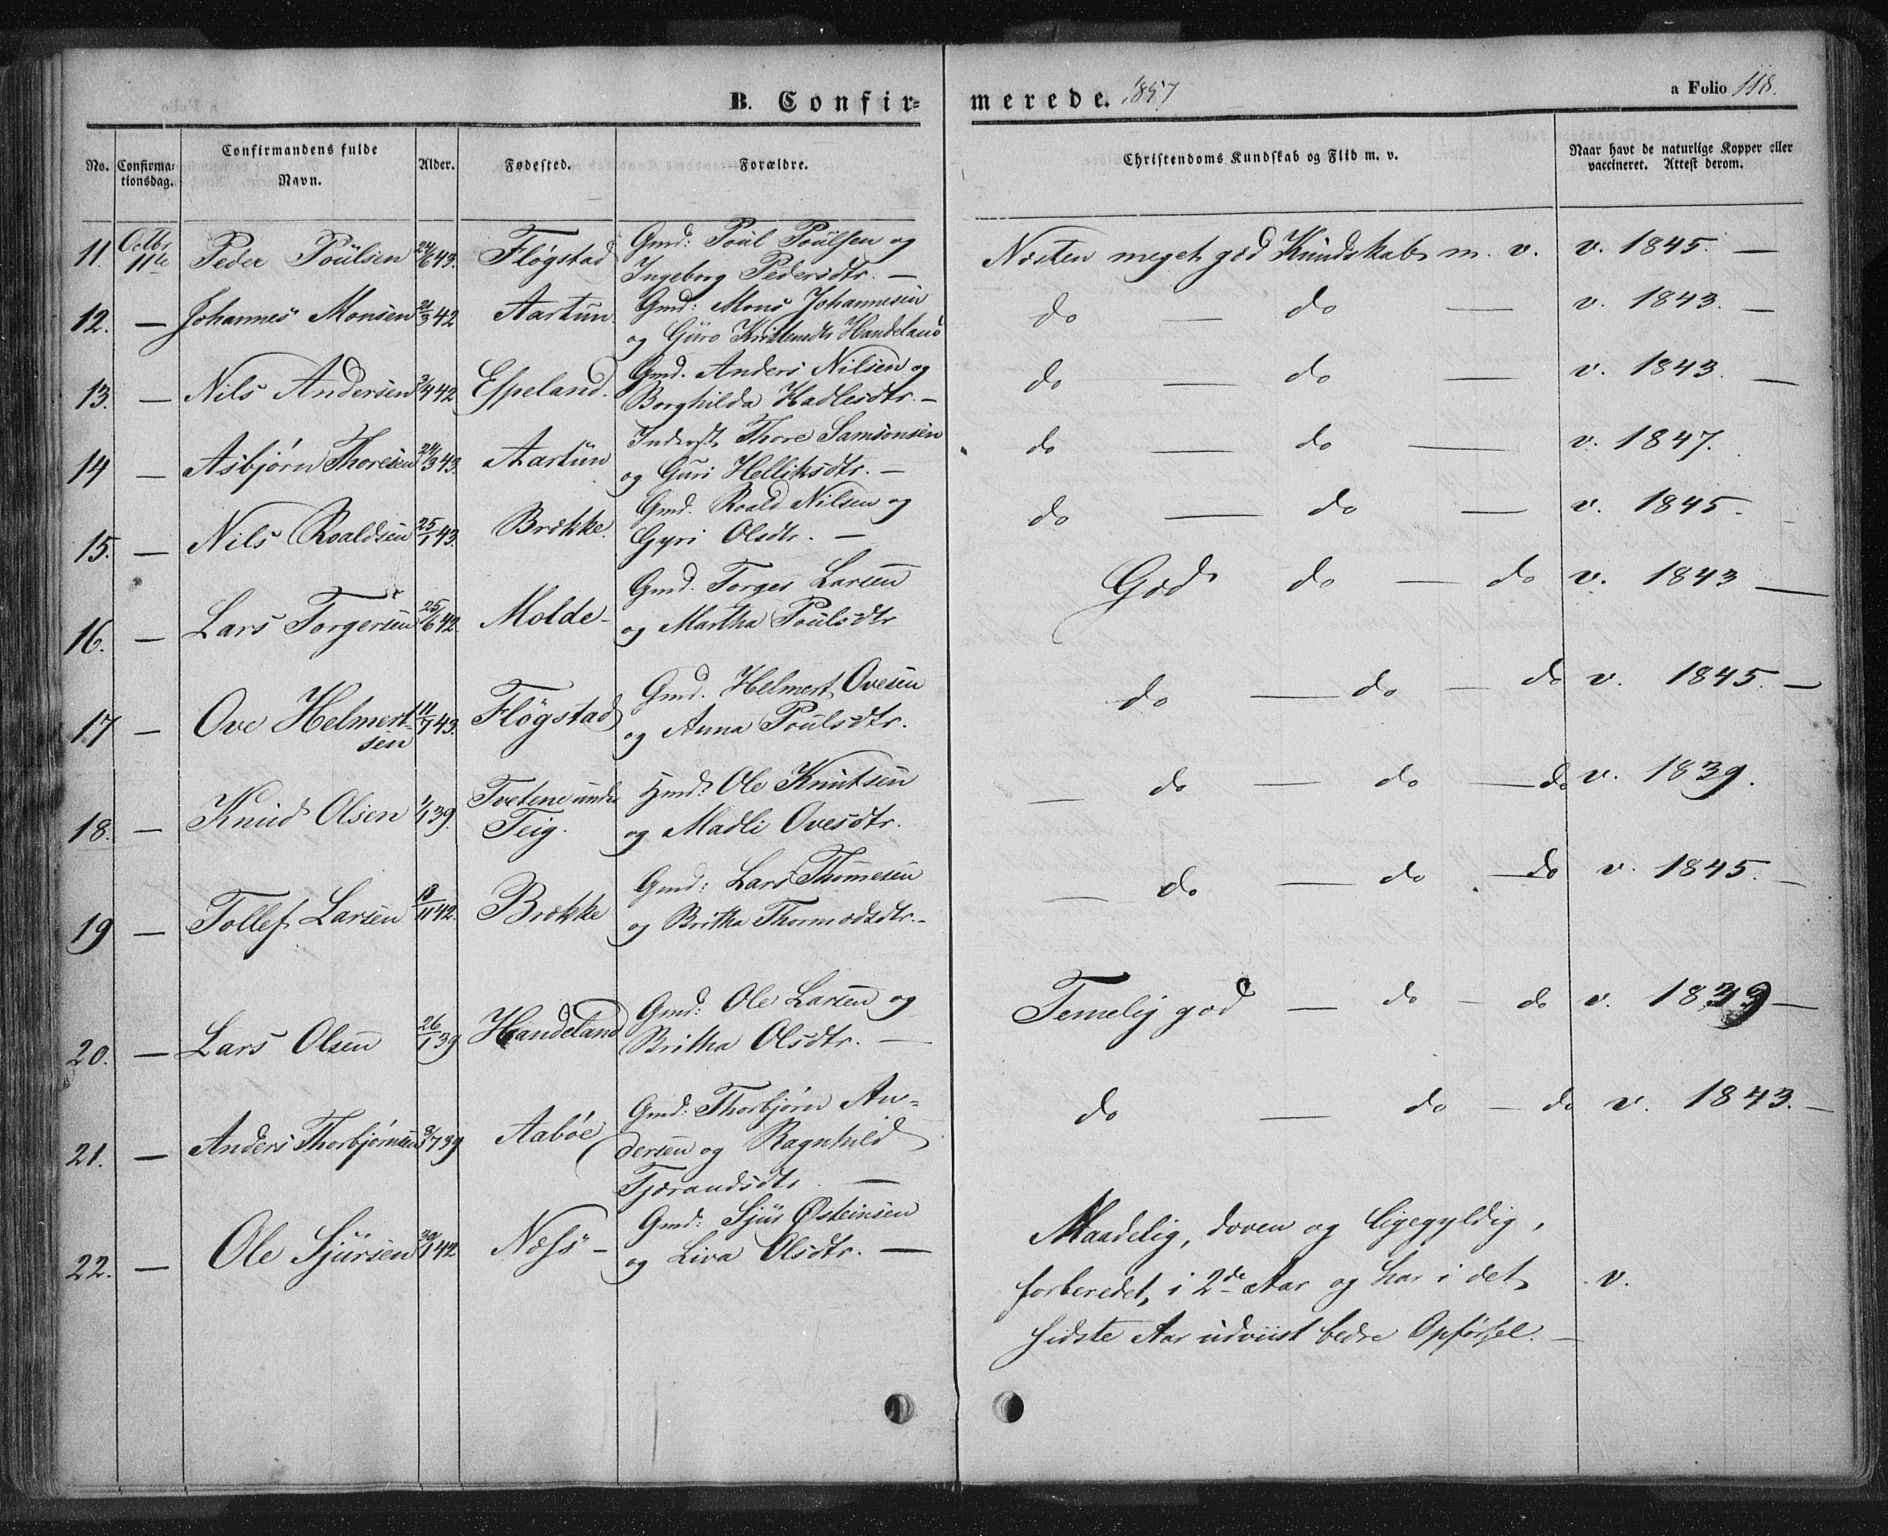 B. Confir=
merede. 1857
a Folio 118.
No.
Confirma-
tionsdag.
Confirmandens fulde
Navn.
Alder.
Fødested.
Forældre.
Christendoms Kundskab og Flid m. v.
Naar havt de naturlige Kopper eller
vaccineret. Attest derom.
11. Octbr 11te Peder Poülsen 24/6 43. Fløgstad Gmd: Poül Poülsen og
Ingeborg Pedersdtr. — Næsten meget god Kündskab m. v. v. 1845. —
12. — Johannes Monsen /3 42 Aartün. Gmd: Mons Johannesen
og Güro Handeland do — do — v. 1843. —
13. — Nils Andersen 3/4 42 Espeland. Gmd. Anders Nilsen og
Borghilda Hadlesdtr. — do — do — v. 1843. —
14 — Asbjørn Thoresen 24/3 43. Aartün Inderst Thore Samsonsen
og Güri Helliksdtr. — do — do — v. 1847.
15. — Nils Roaldsen 25/1 43. Brække. Gmd. Roald Nilsen og
Gyri Olsdtr. — do — do — v. 1845.
16. — Lars Torgersen 25/6 42. Molde - Gmd. Torger Larsen
og Martha Poülsdtr God do — do v. 1843 —
17 — Ove Helmert-
sen 11/7 43. Fløgstad Gmd. Helmert Ovesen
og Anna Poülsdtr. do — do — do v. 1845. —
18. — Knüd Olsen 1/1 39. Tvetene under
Teig. Hmd: Ole Knütsen
og Madli Ovesdtr. — do — do — do v. 1839.
19 — Tollef Larsen 18/11 42. Brække Gmd: Lars Thomesen
og Britha Thormodsdtr. - — do — do — do v. 1845. —
20. — Lars Olsen 26/1 39 Handeland Gmd: Ole Larsen og
Britha Olsdtr. — Temelig god — do — do v. 1839 —
21. — Anders Thorbjørnsen 3/7 39 Aabøe Gmd: Thorbjørn An-
dersen og Ragnhild
Tjerandsdtr. — do — do — do v. 1843. —
22. — Ole Sjürsen 30/1 42 Næss - Gmd: Sjür Østeinsen
og Liva Olsdtr. — Maadelig, doven og ligegyldig,
forberedet, i 2de Aar og har i det v.
sidste Aar üdviist bedre Opførsel. —